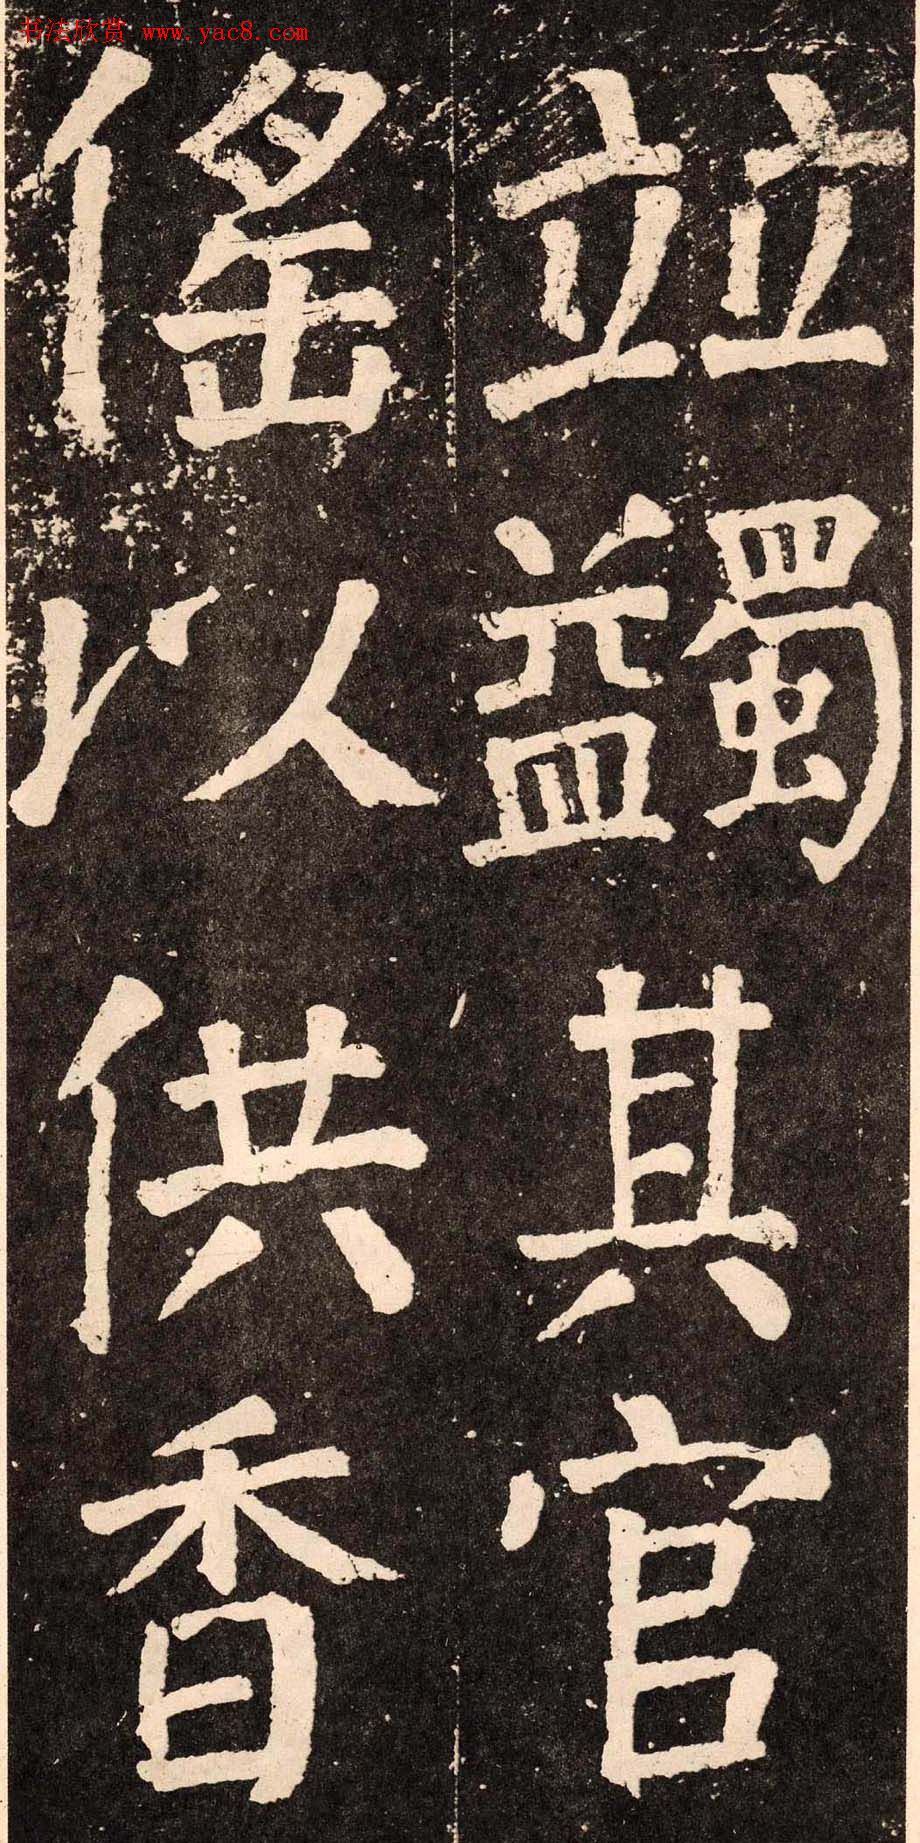 书法欣赏 www.yac8.com
竝蠲其官
傜以供香